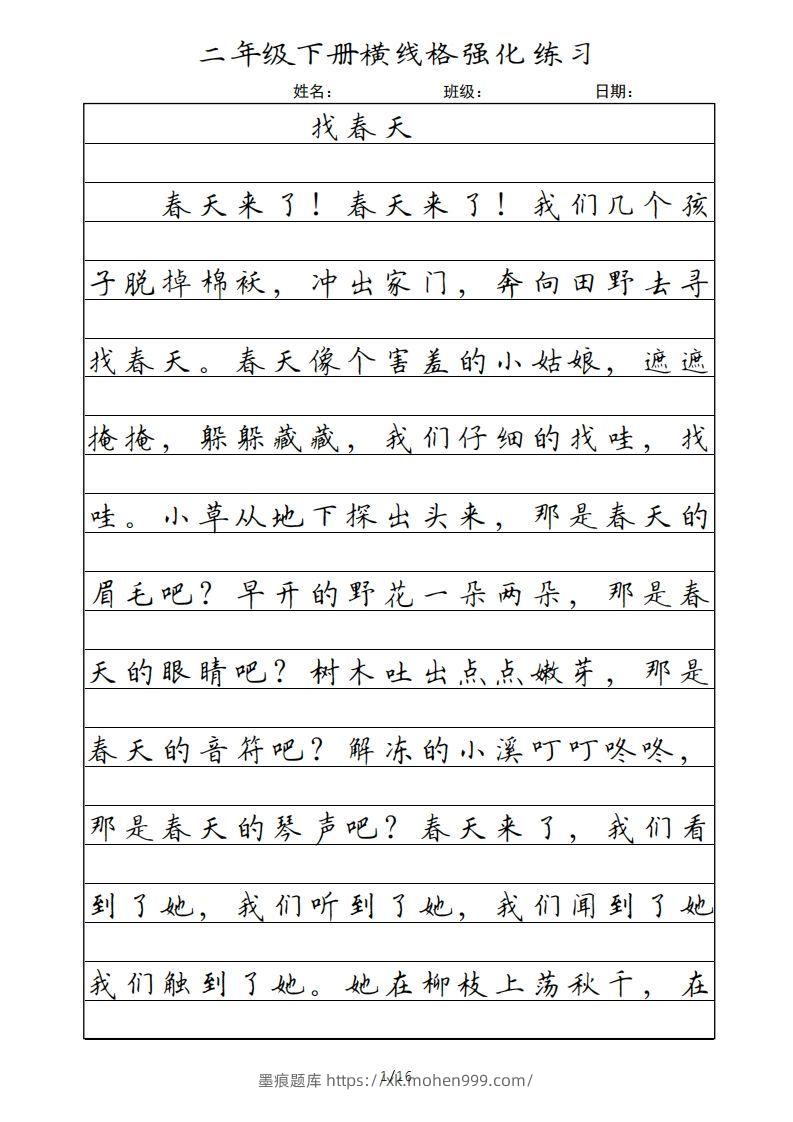 二年级下册横线格强化练习
姓名： 班级： 日期：
找春天
春天来了！春天来了！我们几个孩
子脱掉棉袄，冲出家门，奔向田野去寻
找春天。春天像个害羞的小姑娘，遮遮
掩掩，躲躲藏藏，我们仔细的找哇，找
哇。小草从地下探出头来，那是春天的
眉毛吧？早开的野花一朵两朵，那是春
天的眼睛吧？树木吐出点点嫩芽，那是
春天的音符吧？解冻的小溪叮叮咚咚，
那是春天的琴声吧？春天来了，我们看
到了她，我们听到了她，我们闻到了她
我们触到了她。她在柳枝上荡秋千，在
1/16
墨痕题库 https://xk.mohen999.com/